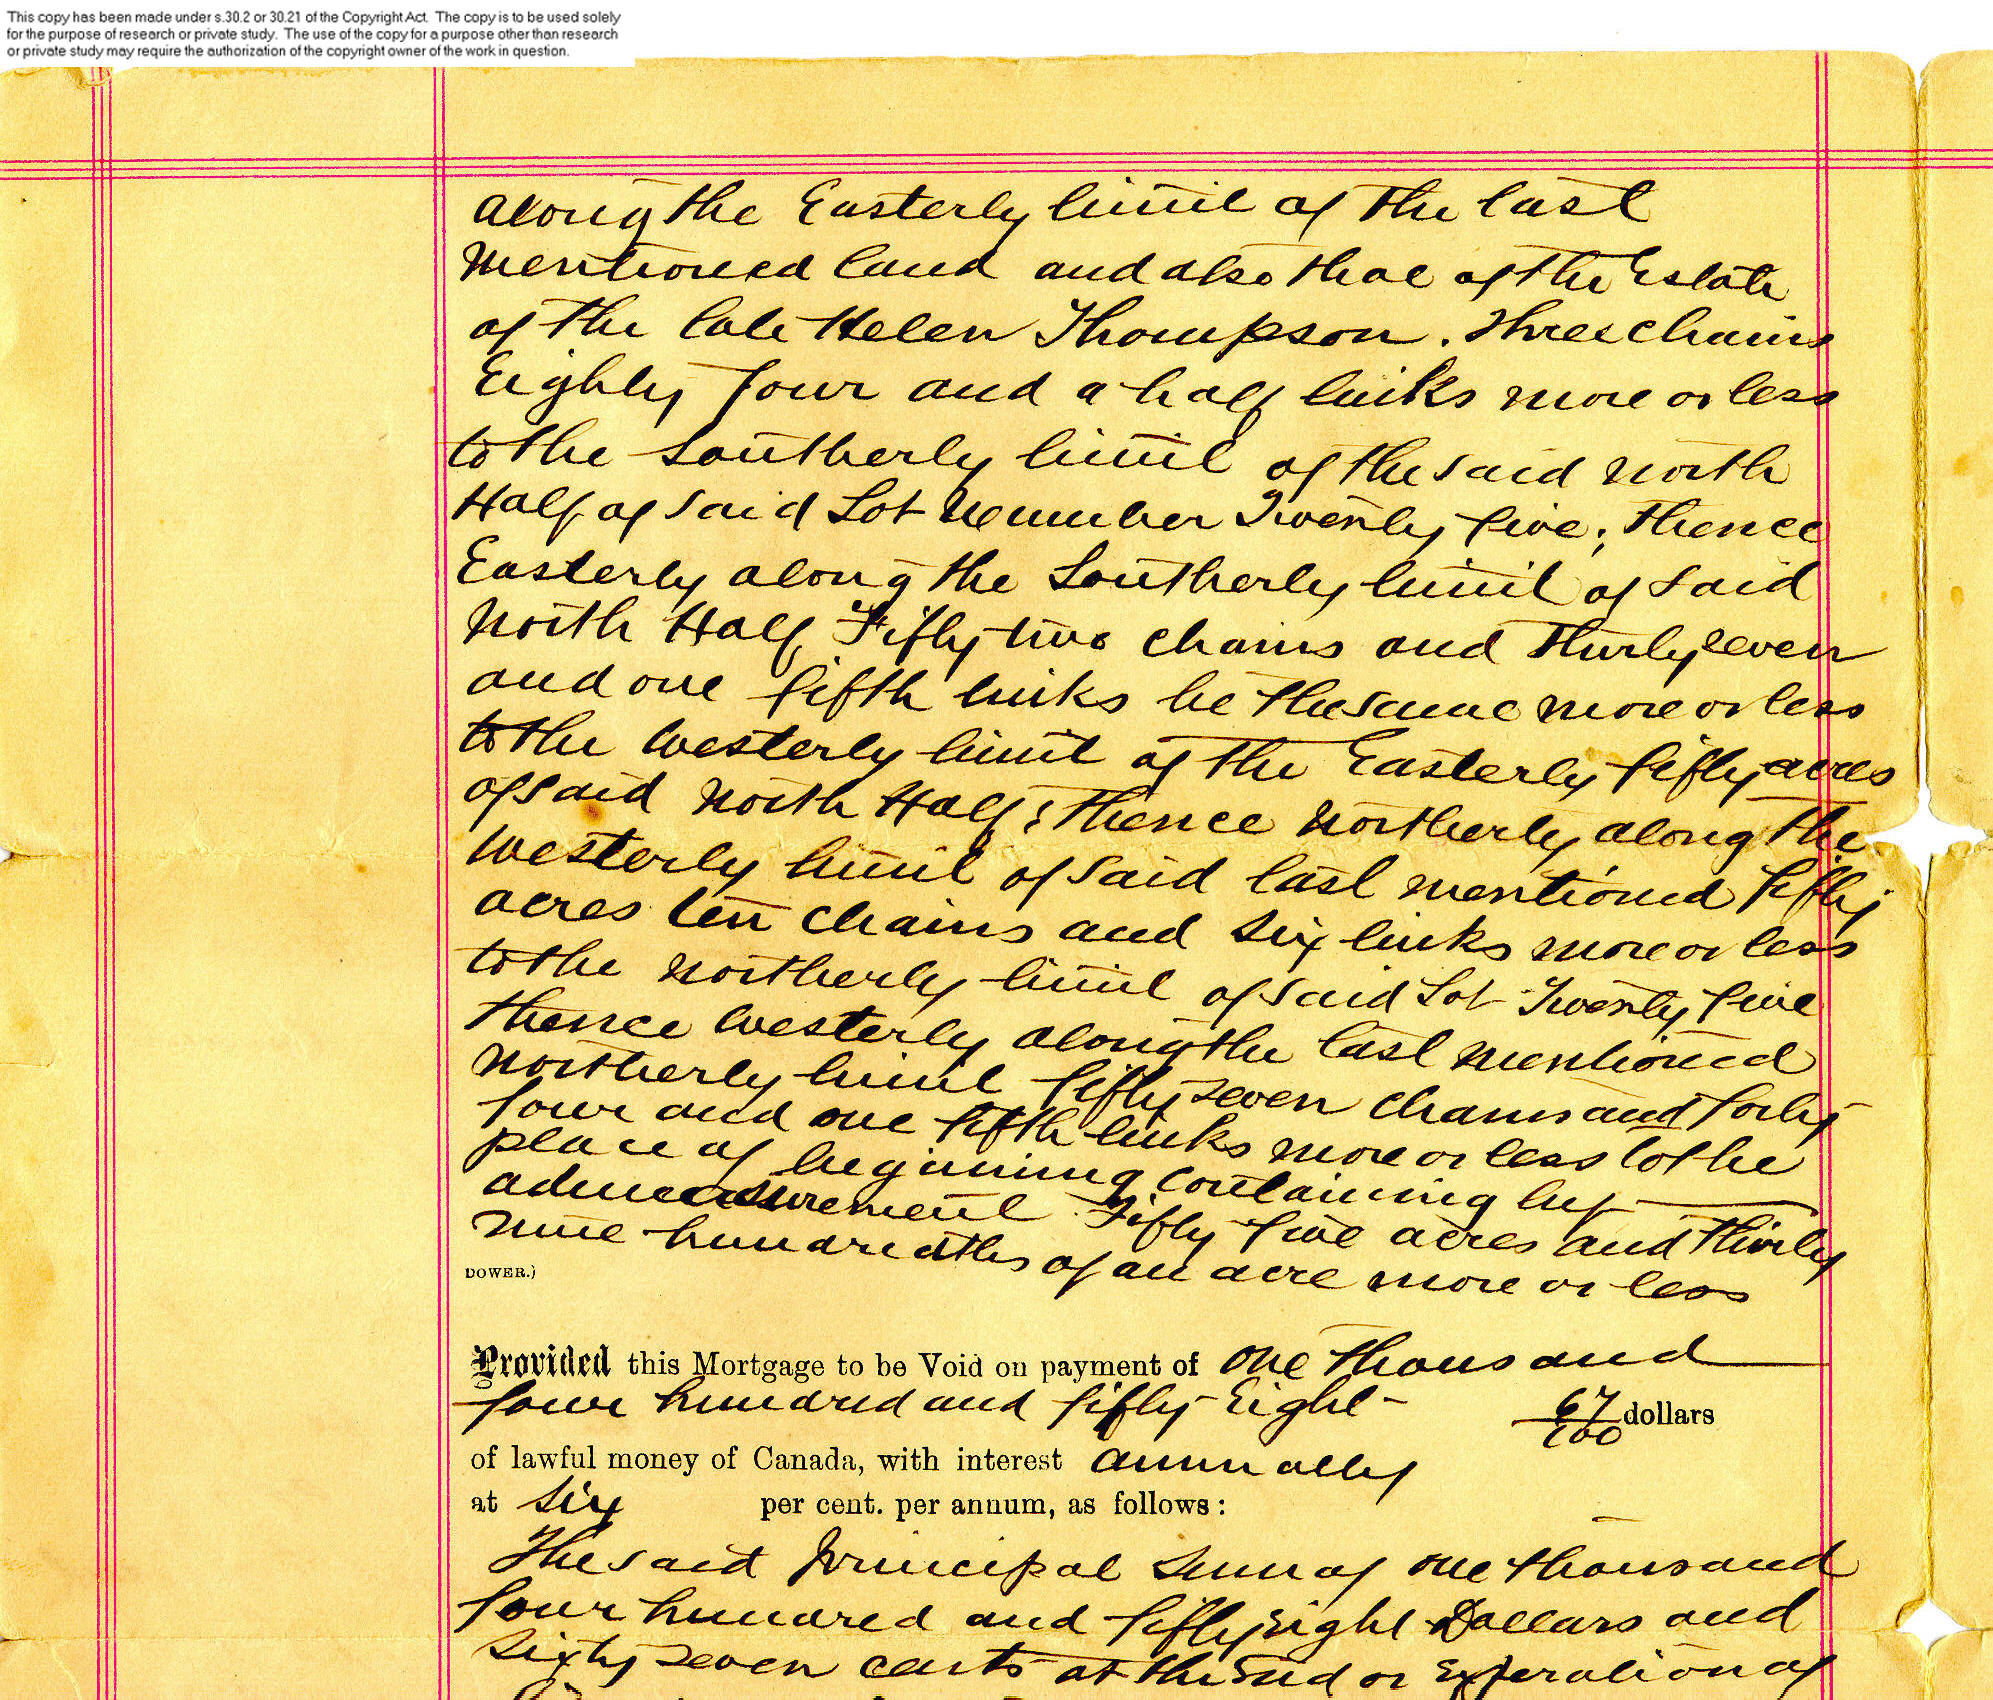 This copy has been made under s.30.2 or 30.21 of the Copyright Act. The copy is to be used solely
for the purpose of research or private study. The use of the copy for a purpose other than research
or private study may require the authorization of the copyright owner of the work in question.
along the Easterly limit of the last
mentioned land and also that of the Estate
of the late Helen Thompson. Three chains
Eighty four and a half links more or less
to the Southerly limit of the said North
Half of said Lot Number Twenty five; thence
Easterly along the Southerly limit of said
North Half Fifty two chains and Thirty seven
and one fifth links be the same more or less
to the Westerly limit of the Easterly fifty acres
of said North Half; Thence Northerly along the
Westerly limit of said last mentioned fifty
acres ten chains and six links more or less
to the Northerly limit of said Lot Twenty five
thence Westerly along the last mentioned
Northerly limit fifty seven chains and forty
four and one fifth links more or less to the
place of beginning containing by
admeasurement Fifty five acres and thirty
nine hundredths of an acre more or less
DOWER.)
Provided this Mortgage to be Void on payment of One thousand
four hundred and fifty Eight 67/100 dollars
of lawful money of Canada, with interest annually
at Six per cent. per annum, as follows:
The said Principal Sum of One thousand
four hundred and fifty eight Dollars and
Sixty seven cents at the End or Experation of